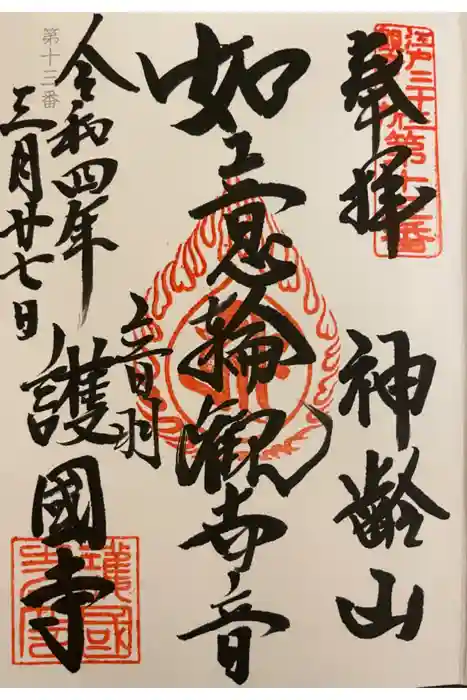 奉拝
江戸三十三
観音札所第十三番
神齢山
如意輪観世音
音羽
護國寺
令和四年
三月廿七日
第十三番